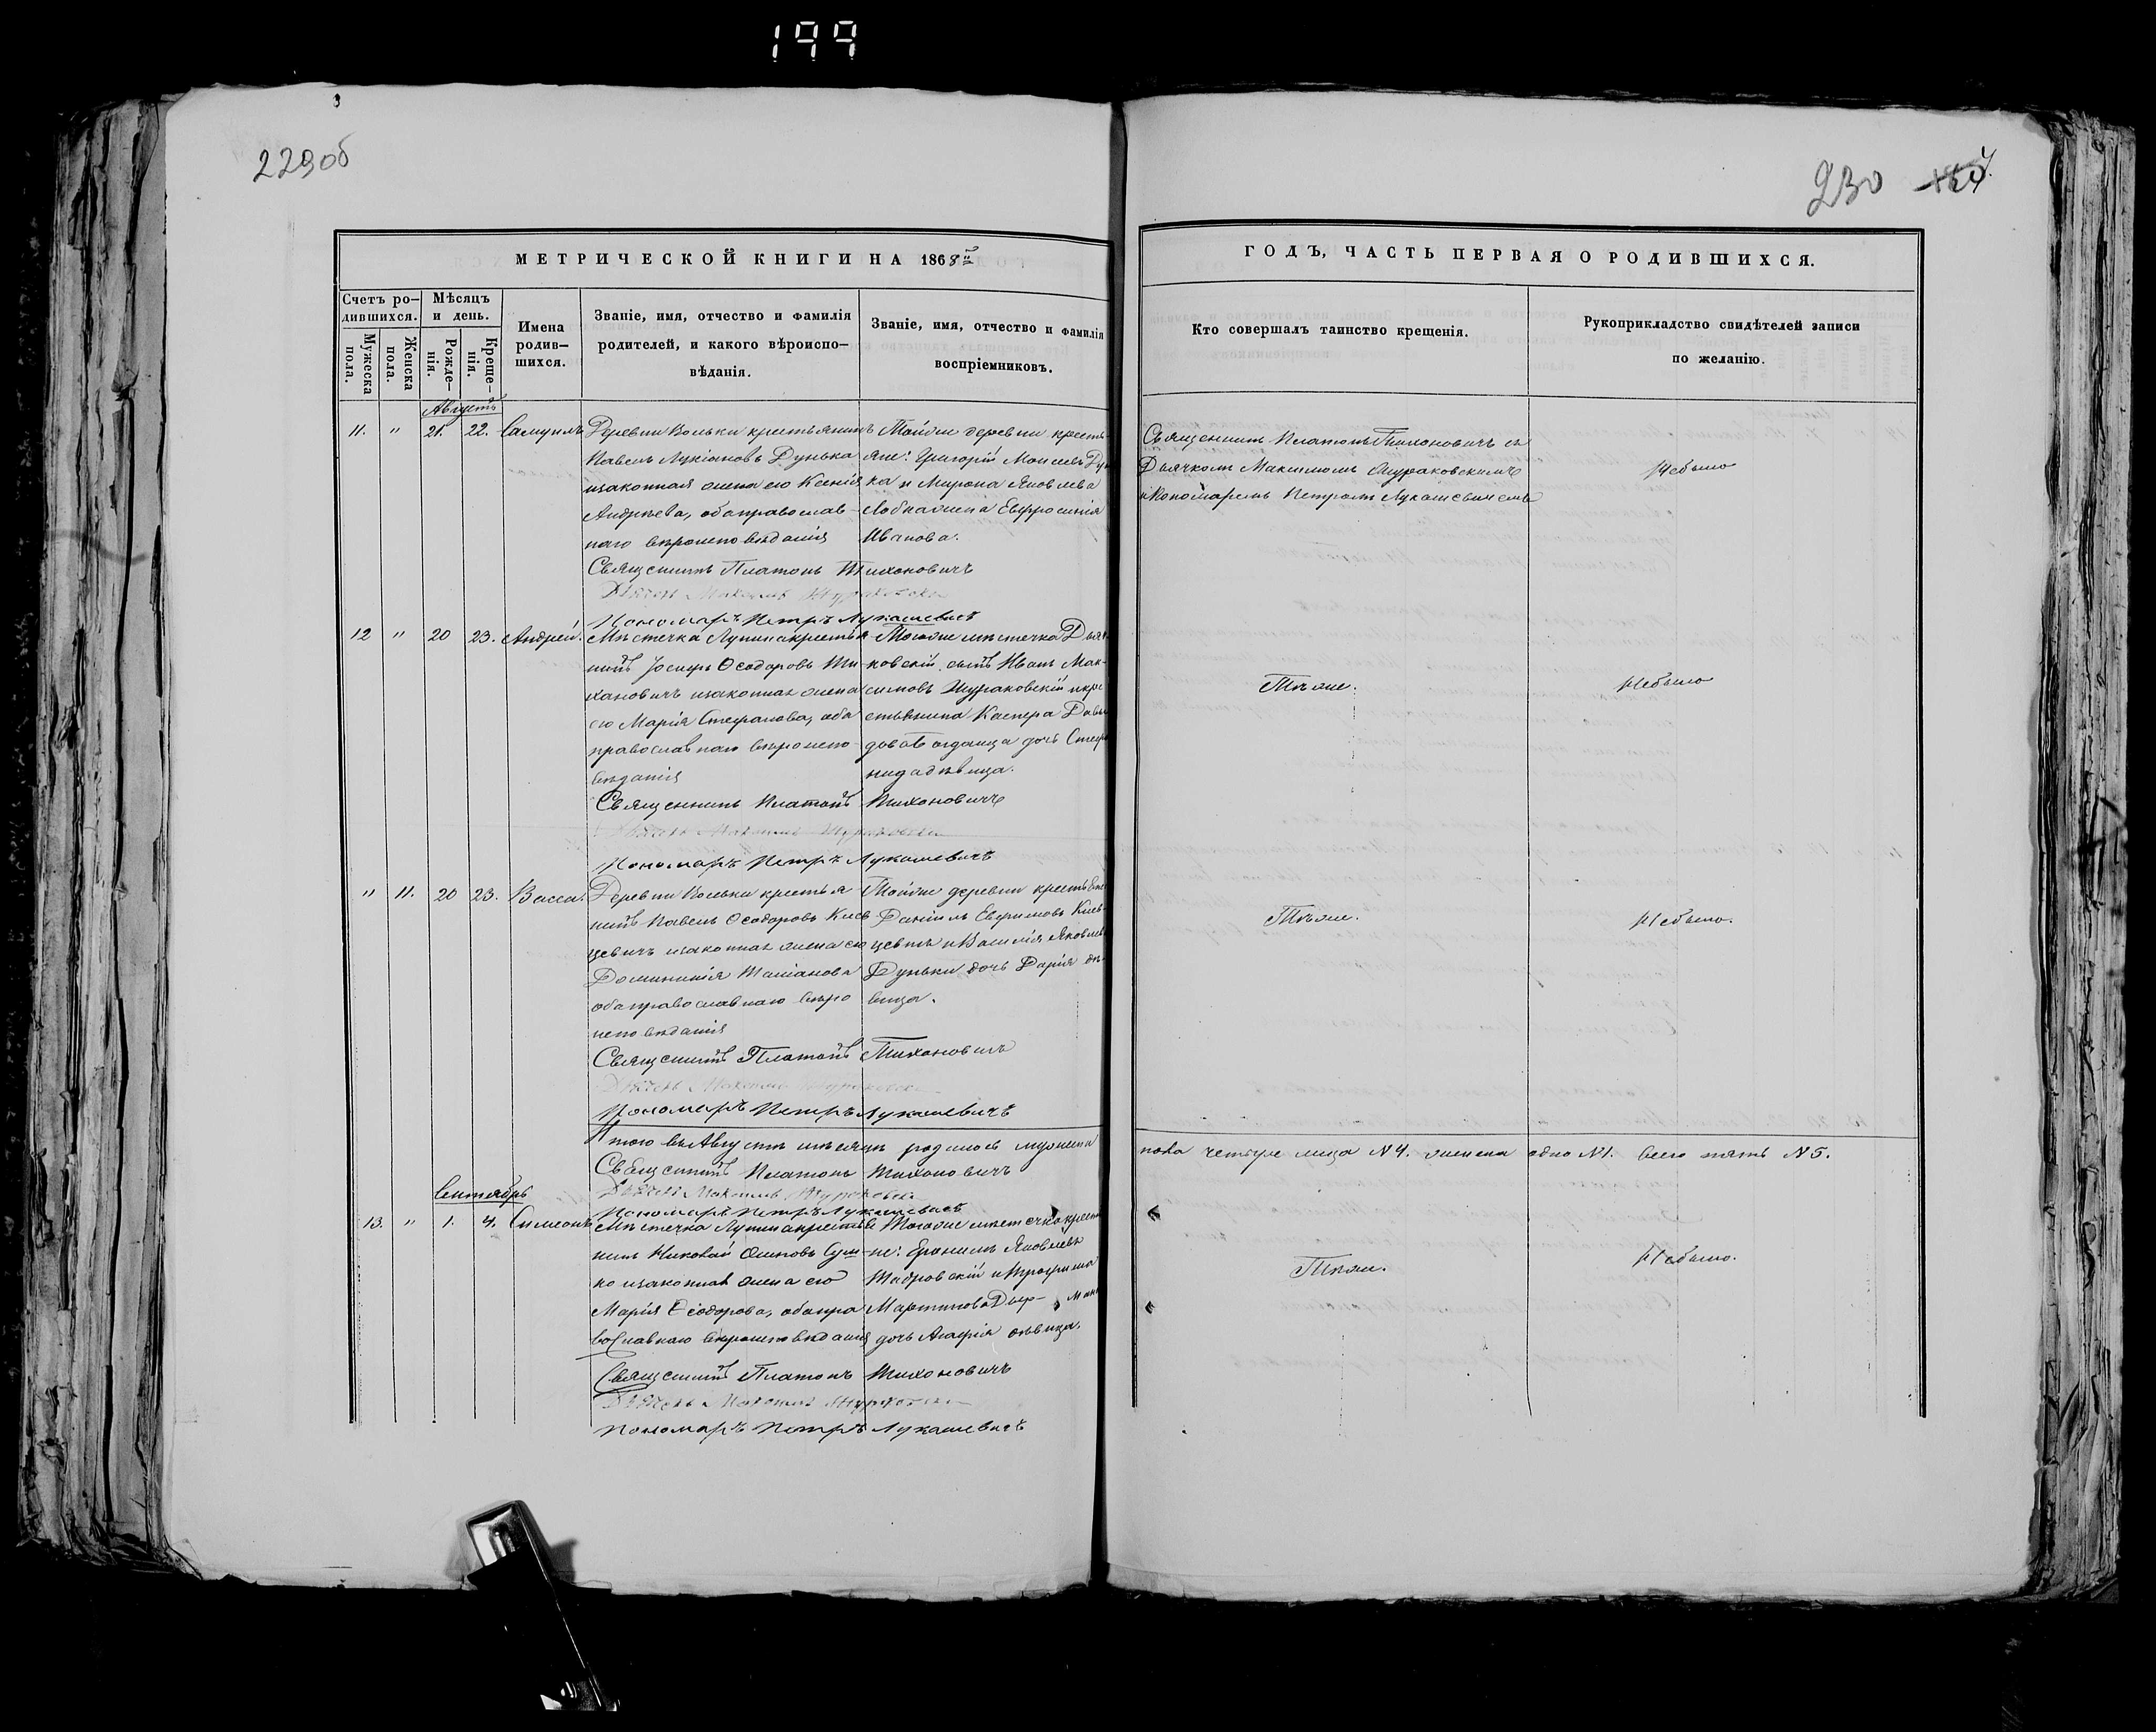 199
229об
230
МЕТРИЧЕСКОЙ КНИГИ НА 1868й
ГОДЪ, ЧАСТЬ ПЕРВАЯ О РОДИВШИХСЯ.
Счетъ ро-
дившихся.
Мужеска
пола.
Женска
пола.
Мѣсяцъ
и день.
Рожде-
нія.
Креще-
нія.
Имена
родив-
шихся.
Званіе, имя, отчество и фамилія
родителей, и какого вѣроиспо-
вѣданія.
Званіе, имя, отчество и фамилія
воспріемниковъ.
Кто совершалъ таинство крещенія.
Рукоприкладство свидѣтелей записи
по желанію.
Августъ
11. " 21. 22. Самуилъ
Деревни Вольки крестьянинъ
Павелъ Лукіановъ Дунька
изаконная жена его Ксенія
Андреева, оба православ-
наго вѣроисповѣданія
Тойже деревни крестья-
не: Григорій Моисеевъ Дун
ка и Мирона Яковлева
жена Евфросинія
Иванова.
Священникъ Платонъ Тихоновичъ
Дьячекъ Максимъ Жураковскій
Пономарь Петръ Лукашевичъ
Священникъ Платонъ Тихоновичъ съ
Дьячкомъ Максимомъ Жураковскимъ
и Пономаремъ Петромъ Лукашевичемъ
Небыло
12 " 20 23. Андрей.
Мѣстечка Лунина крестья
нинъ Іосифъ Ѳеодоровъ Ти-
хановичъ изаконная жена
его Марія Стефанова, оба
православнаго вѣроиспо-
вѣданія
Тогоже мѣстечка Дьяч
ковскій сынъ Иванъ Мак-
симовъ Жураковскій икре
стьянина Каспера Давы
дова дочь Стефа
нида дѣвица.
Священникъ Платонъ Тихоновичъ
Дьячекъ Максимъ Жураковскій
Пономарь Петръ Лукашевичъ
Тѣже.
Небыло
" 11. 20 23. Васса.
Деревни Вольки крестья
нинъ Павелъ Ѳеодоровъ Киев
цевичъ изаконная жена его
Доминикія
оба православнаго вѣро
исповѣданія
Тойже деревни крестьяне
Даніилъ Евфимовъ Киев
цевичъ и Василія Яковлева
Дуньки дочь Дарія дѣ-
вица.
Священникъ Платонъ Тихоновичъ
Дьячекъ Максимъ Жураковскій
Пономарь Петръ Лукашевичъ
Тѣже.
Небыло.
Итого въ Августѣ мѣсяцѣ родилось мужеска
пола четыре лица №4. женска одно №1. всего пять №5.
Священникъ Платонъ Тихоновичъ
Дьячекъ Максимъ Жураковскій
Пономарь Петръ Лукашевичъ
Сентябрь
13. " 1. 4. Симеонъ
Мѣстечка Лунина крестья
нинъ Николай Осиповъ
ко изаконная жена его
Марія Ѳеодорова, оба пра
вославнаго вѣроисповѣданія
Тогоже мѣстечка крестья
не: Еронимъ Яковлевъ
и Трофима
Мартинова
дочь Агафія дѣвица.
Священникъ Платонъ Тихоновичъ
Дьячекъ Максимъ Жураковскій
Пономарь Петръ Лукашевичъ
Тѣже.
Небыло.